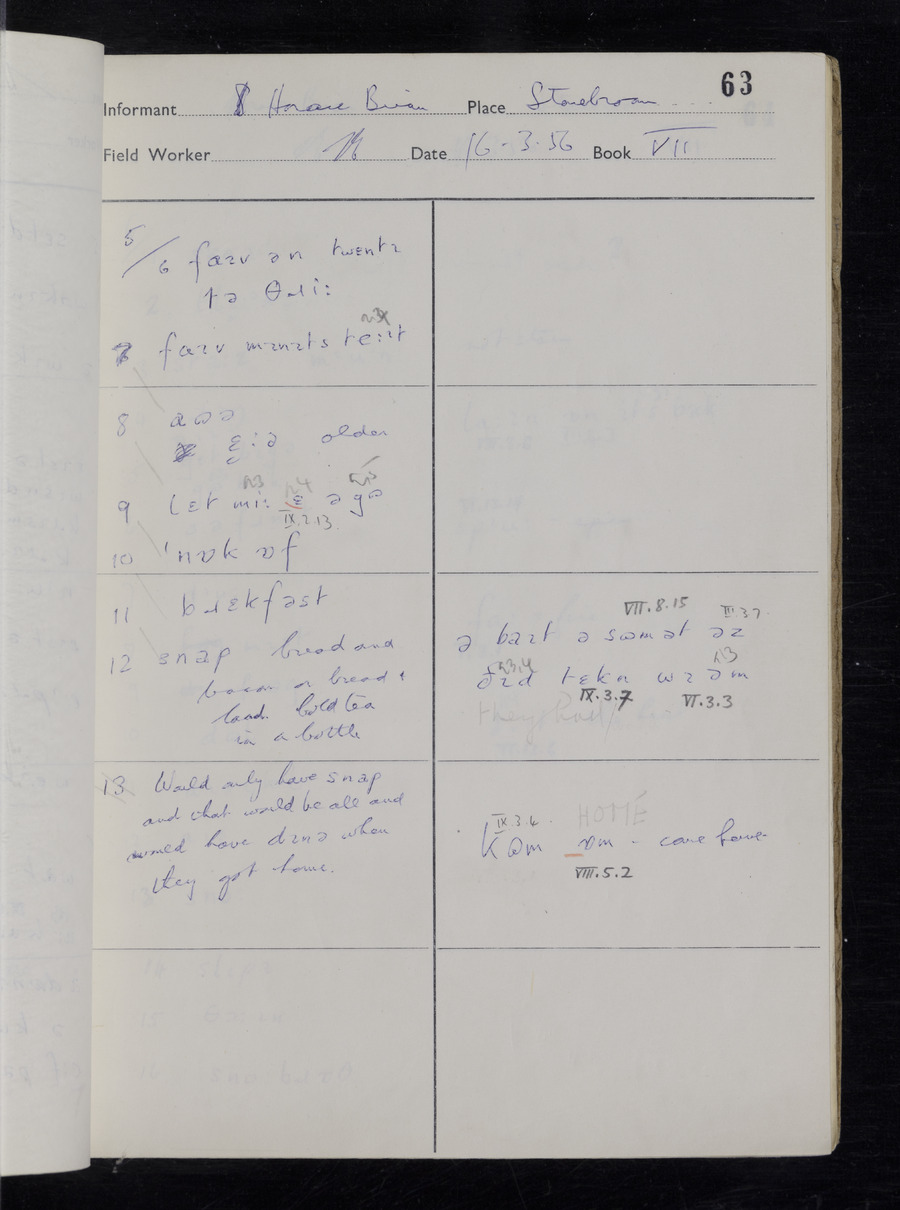 63
Informant Horace Brian Place Stonebroom
Field Worker Date 16-3-56 Book VII
5
/6 faɪv ən twentɪ
tə θɹiː
7 faɪv mɪnɪts
8 aʊə
ɛːə older
n3 n4 n5
9 lɛt miː ɛ ə gʊ
IX.2.13
10 'nɒk ɒf
11 bɹɛkfəst
VII.8.15 III.3.7
12 snap bread and
bacon or bread &
lard. Cold tea
in a bottle
ə baɪt ə sʊmət əz
n3,4 n3
ðɪd tɛkn wɪ əm
IX.3.7 VI.3.3
they had
13 Would only have snap
and that would be all and
would have dɪnə when
they got home.
IX.3.4 HOME
kʊm ɒm - come home
VIII.5.2